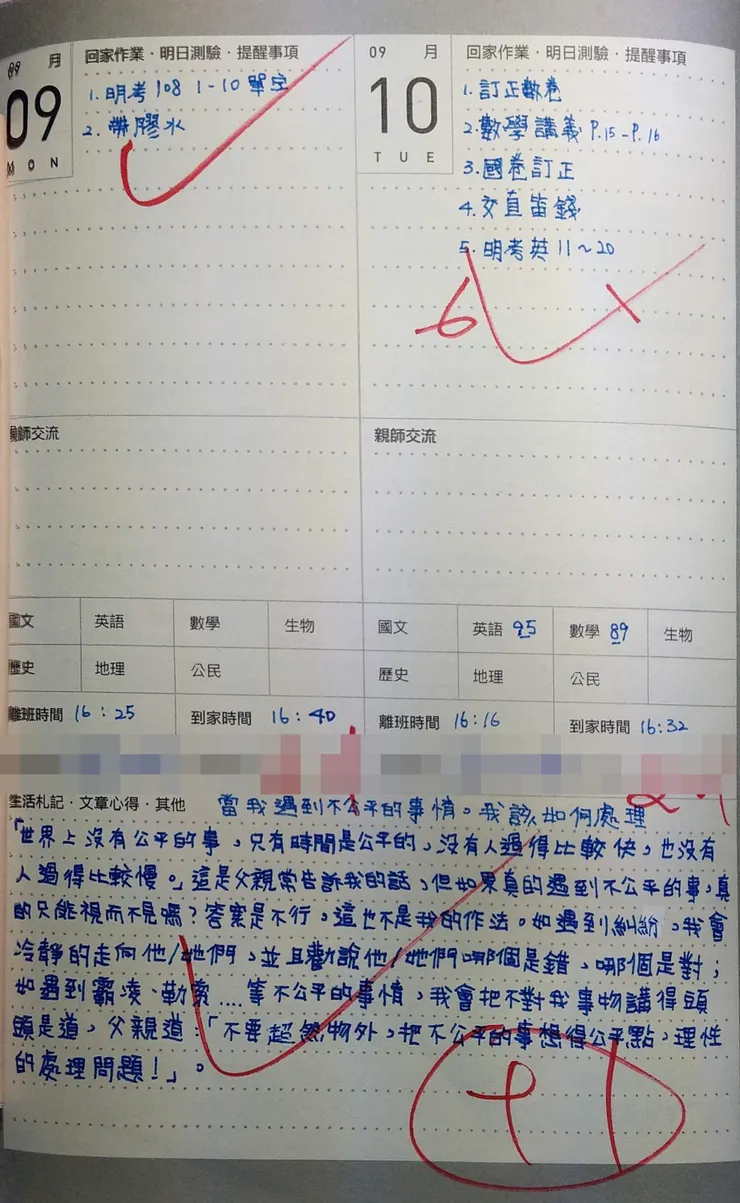 09 月
09
MON
回家作業・明日測驗・提醒事項
1. 明考 108 1-10 單字
2. 帶膠水
親師交流
國文 英語 數學 生物
歷史 地理 公民
離班時間 16:25 到家時間 16:40
09 月
10
TUE
回家作業・明日測驗・提醒事項
1. 訂正數卷
2. 數學講義 P.15-P.16
3. 國卷訂正
4. 交直笛錢
5. 明考英 11~20
6
親師交流
國文 英語 95 數學 89 生物
歷史 地理 公民
離班時間 16:16 到家時間 16:32
生活札記・文章心得・其他 當我遇到不公平的事情,我該如何處理
「世界上沒有公平的事,只有時間是公平的,沒有人過得比較快,也沒有
人過得比較慢。」這是父親常告訴我的話,但如果真的遇到不公平的事,真
的只能視而不見嗎?答案是不行,這也不是我的作法。如遇到糾紛,我會
冷靜的走向他/她們,並且勸說他/她們哪個是錯、哪個是對;
如遇到霸凌、勒索....等不公平的事情,我會把不對我事物講得頭
頭是道,父親道:「不要超然物外,把不公平的事想得公平點,理性
的處理問題!」。
91